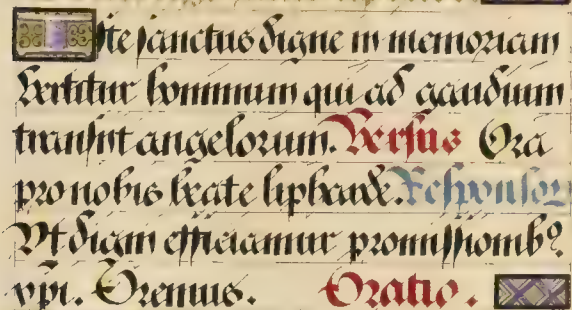 Iste sanctus digne in memoriam
vertitur hominum qui ad gaudium
transiit angelorum. Versus Ora
pro nobis beate lipharde. Responsor
Vt digni efficiamur promissionibꝰ.
xpi. Oremus. Oratio.